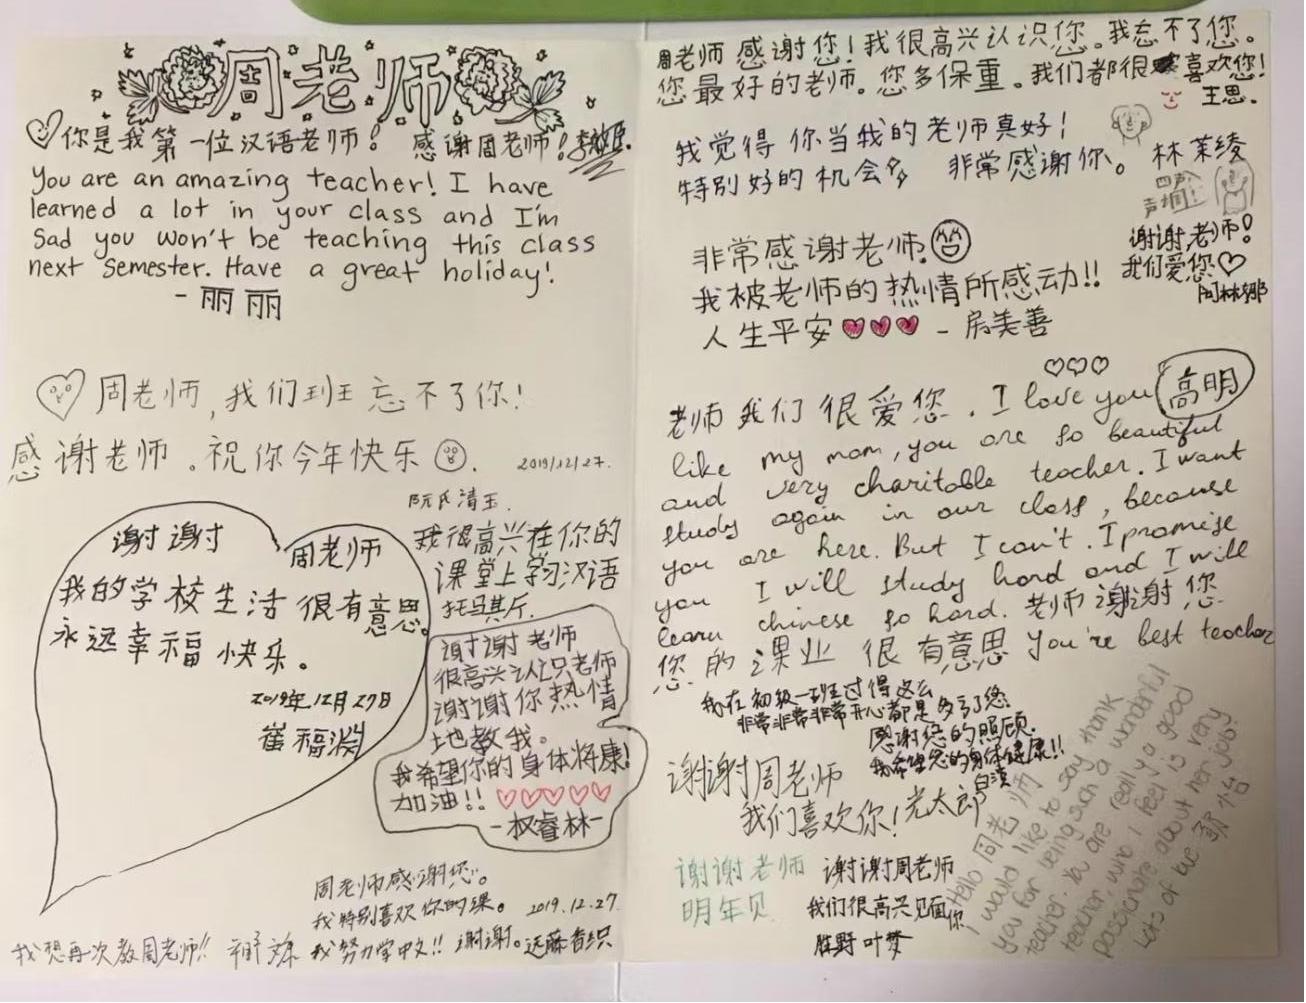 周老师
你是我第一位汉语老师! 感谢周老师!
You are an amazing teacher! I have
learned a lot in your class and I'm
Sad you won't be teaching this class
next semester. Have a great holiday!
- 丽丽
周老师,我们班忘不了你!
感谢老师。祝你今年快乐. 2019/12/27.
阮氏清玉.
谢谢 周老师
我的学校生活 很有意思。
永远幸福 快乐。
2019年12月27日
崔福渊
我很高兴在你的
课堂上学习汉语
托马斯.
谢谢 老师
很高兴认识老师
谢谢 你 热情
地教我。
我希望你的身体将康!
加油!!
-权睿林-
周老师感谢您。
我特别喜欢你的课。 2019.12.27.
我努力学中文!! 谢谢。远藤香织
我想再次教周老师!!
周老师 感谢您!我很高兴认识您。我忘不了您。
您最好的老师。您多保重。我们都很喜欢您!
王思.
我觉得 你当我的老师真好!
特别好的 机会 非常感谢你。 林茉绫
四声
声调
谢谢老师!
我们爱您
阿林娜
非常感谢老师.
我被老师的热情所感动!!
人生平安 - 房美善
老师 我们 很 爱 您 . I love you 高明
like my mom, you are so beautiful
and very charitable teacher. I want
study again in our class, because
you are here. But I can't. I promise
you I will study hard and I will
learn chinese so hard. 老师 谢谢 您
您 的 课业 很 有意思 You're best teacher
我在初级一班过得这么
非常非常非常开心都是多亏了您
感谢您的照顾.
我希望您的身体健康!!
白滨
谢谢周老师
我们喜欢你! 光太郎
谢谢 老师
明年见
谢谢周老师
我们很高兴见面你
胜野 叶梦
Hello 周老师
I would like to say thank
you for being such a wonderful
teacher. You are really a good
teacher, who I feel is very
passionate about her job!
Lots of love